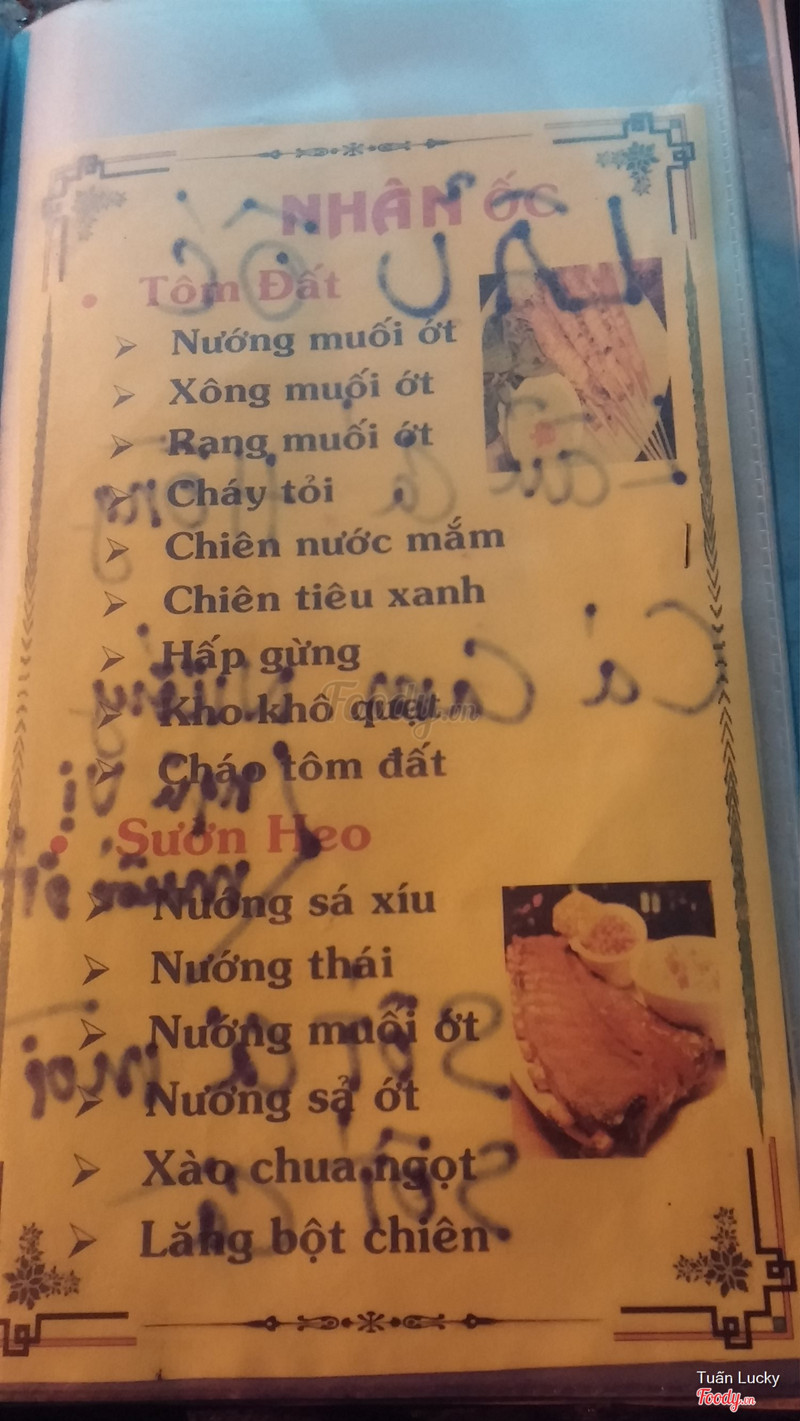 NHÂN ỐC
Tôm Đất
Nướng muối ớt
Xông muối ớt
Rang muối ớt
Cháy tỏi
Chiên nước mắm
Chiên tiêu xanh
Hấp gừng
Kho khô quẹt
Cháo tôm đất
Sườn Heo
Nướng sá xíu
Nướng thái
Nướng muối ớt
Nướng sả ớt
Xào chua ngọt
Lăng bột chiên
Foody.vn
Tuấn Lucky
Foody.vn